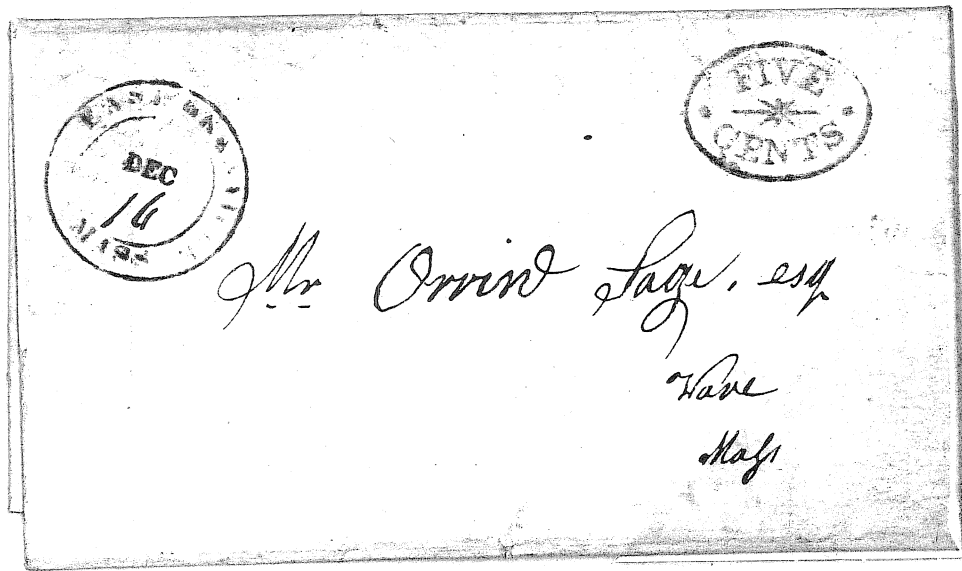 EAST
DEC
16
MASS
FIVE
CENTS
Mr Orvin Sage, esq
Ware
Mass